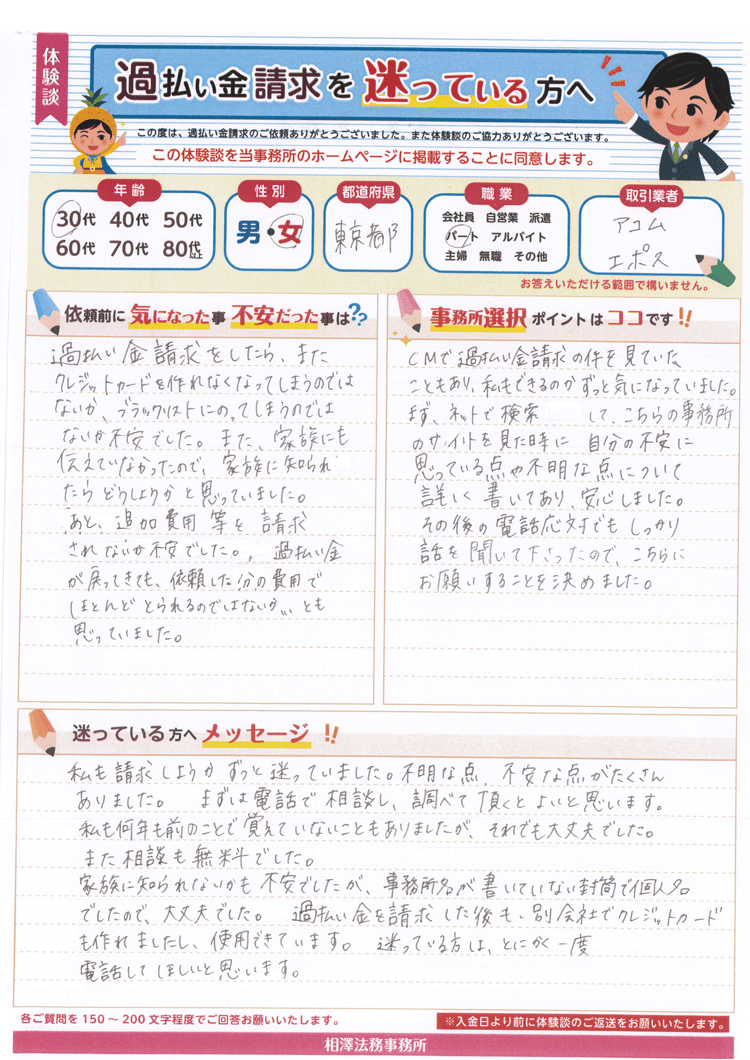 体験談
過払い金請求を迷っている方へ
この度は、過払い金請求のご依頼ありがとうございました。また体験談のご協力ありがとうございます。
この体験談を当事務所のホームページに掲載することに同意します。
年齢
30代 40代 50代
60代 70代 80歳以上
性別
男・女
都道府県
東京都
職業
会社員 自営業 派遣
パート アルバイト
主婦 無職 その他
取引業者
アコム
エポス
お答えいただける範囲で構いません。
依頼前に気になった事 不安だった事は??
過払い金請求をしたら、また
クレジットカードを作れなくなってしまうのでは
ないか、ブラックリストにのってしまうのでは
ないか不安でした。また、家族にも
伝えていなかったので、家族に知られ
たらどうしようかと思っていました。
あと、追加費用等を請求
されないか不安でした。, 過払い金
が戻ってきても、依頼した分の費用で
ほとんどとられるのではないか… とも
思っていました。
事務所選択ポイントはココです!!
CMで過払い金請求の件を見ていた
こともあり、私もできるのかずっと気になっていました。
まず、ネットで検索 して、こちらの事務所
のサイトを見た時に 自分の不安に
思っている点や不明な点について
詳しく書いてあり、安心しました。
その後の電話応対でもしっかり
話を聞いて下さったので、こちらに
お願いすることを決めました。
迷っている方へメッセージ!!
私も請求しようかずっと迷っていました。不明な点、不安な点がたくさん
ありました。 まずは電話で相談し、調べて頂くとよいと思います。
私も何年も前のことで覚えていないこともありましたが、それでも大丈夫でした。
また相談も無料でした。
家族に知られないかも不安でしたが、事務所名が書いていない封筒で個人名
でしたので、大丈夫でした。 過払い金を請求した後も、別会社でクレジットカード
も作れましたし、使用できています。 迷っている方は、とにかく一度
電話してほしいと思います。
各ご質問を150～200文字程度でご回答お願いいたします。
※入金日より前に体験談のご返送をお願いいたします。
相澤法務事務所